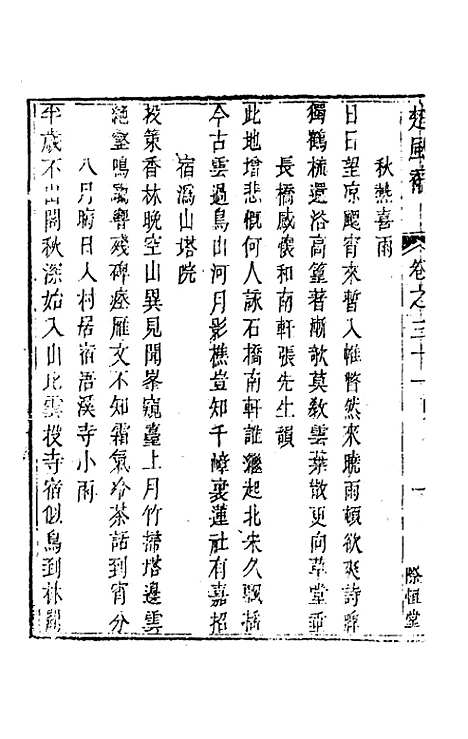 楚風補 卷之三十一 一 際恒堂
秋熱喜雨
日日望凉飈宵來暫入帷瞥然來驍雨頓欲爽詩脾
獨鶴梳還浴高篁著漸欹莫敎雲葉散更向草堂垂
長橋感懷和南軒張先生韻
此地增悲慨何人詠石橋南軒誰繼起北宋久飄搖
今古雲過鳥山河月影樵豈知千嶂裏蓮社有嘉招
宿溈山塔院
投策香林晚空山異見聞峯窺臺上月竹掃塔邊雲
絶壑鳴敲響殘碑瘞雁文不知霜氣冷茶話到宵分
八月晦日入村居宿浯溪寺小雨
半歲不出閣秋深始入山比雲投寺宿似鳥到林閒